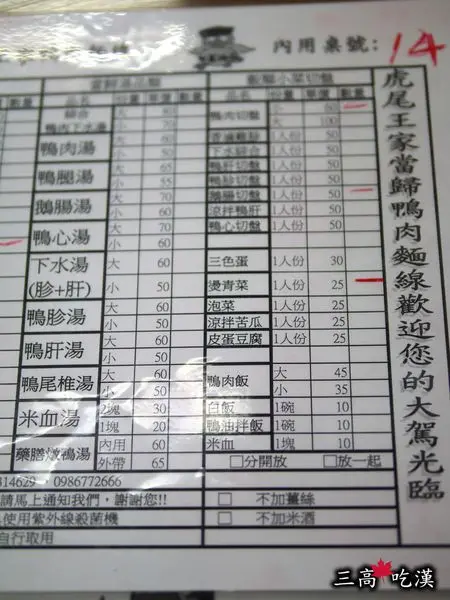 內用桌號: 14
虎尾王家當歸鴨肉麵線歡迎您的大駕光臨
當歸湯品類 飯類小菜切盤
品名 份量 單價 數量 品名 份量 單價 數量
綜合鴨肉下水湯 大 80 小 70
鴨肉湯 大 60 小 50
鴨腿湯 大 65 小 55
鵝腸湯 大 70 小 60
鴨心湯 大 70 小 60
下水湯(胗+肝) 大 60 小 50
鴨胗湯 大 60 小 50
鴨肝湯 大 60 小 50
鴨尾椎湯 大 60 小 50
米血湯 2塊 30 1塊 20
藥膳燉鴨湯 內用 60 外帶 65
鴨肉切盤 小 60 大 100
1人份 50
下水綜合 1人份 50
鴨肝切盤 1人份 50
鴨胗切盤 1人份 50
鵝腸切盤 1人份 50
涼拌鴨肝 1人份 50
鴨心切盤 1人份 50
三色蛋 1人份 30
燙青菜 1人份 25
泡菜 1人份 25
涼拌苦瓜 1人份 25
皮蛋豆腐 1人份 25
鴨肉飯 大 45 小 35
白飯 1碗 10
鴨油拌飯 1碗 10
米血 1塊 10
□分開放 □放一起
314629 0986772666
請馬上通知我們，謝謝您!! □ 不加薑絲
使用紫外線殺菌機 □ 不加米酒
自行取用
三高吃漢